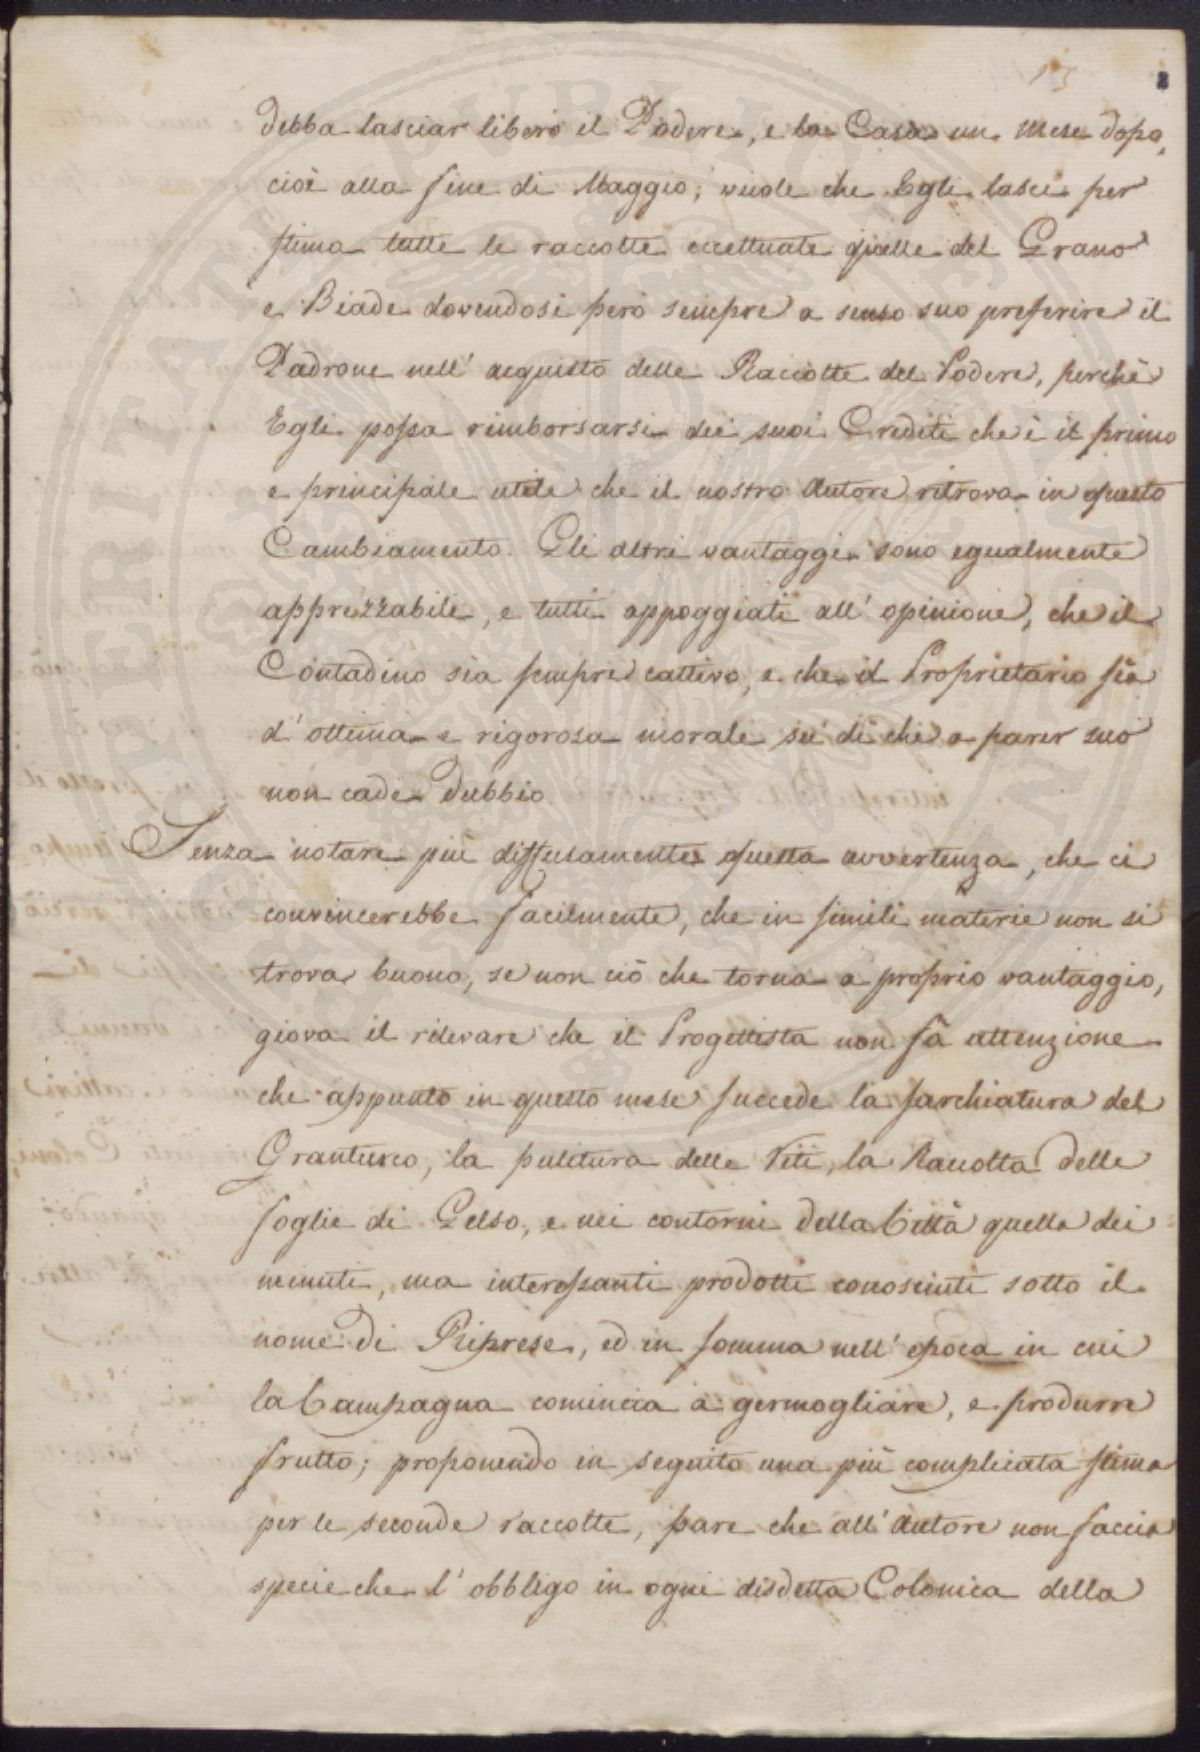 15
2
debba lasciar libero il Podere, e la Casa un Mese dopo,
cioè alla fine di Maggio; vuole che Egli lasci per
stima tutte le raccolte eccettuate quelle del Grano
e Biade dovendosi però sempre a senso suo preferire il
Padrone nell' acquisto delle Raccolte del Podere, perchè
Egli possa rimborsarsi dei suoi Crediti che è il primo
e principale utile che il nostro Autore ritrova in questo
Cambiamento. Gli altri vantaggi sono egualmente
apprezzabili, e tutti appoggiati all' opinione, che il
Contadino sia sempre cattivo, e che il Proprietario sia
d' ottima e rigorosa morale su di che a parer suo
non cade dubbio.
Senza notare più diffusamente questa avvertenza, che ci
convincerebbe facilmente, che in simili materie non si
trova buono, se non ciò che torna a proprio vantaggio,
giova il rilevare che il Progettista non fà attenzione
che appunto in questo mese succede la sarchiatura del
Granturco, la pulitura delle Viti, la Raccolta delle
foglie di Gelso, e nei contorni della Città quella dei
minuti, ma interessanti prodotti conosciuti sotto il
nome di Riprese, ed in somma nell' epoca in cui
la Campagna comincia a germogliare, e produrre
frutto; proponendo in seguito una più complicata stima
per le seconde raccolte, pare che all' Autore non faccia
specie che l' obbligo in ogni disdetta Colonica della